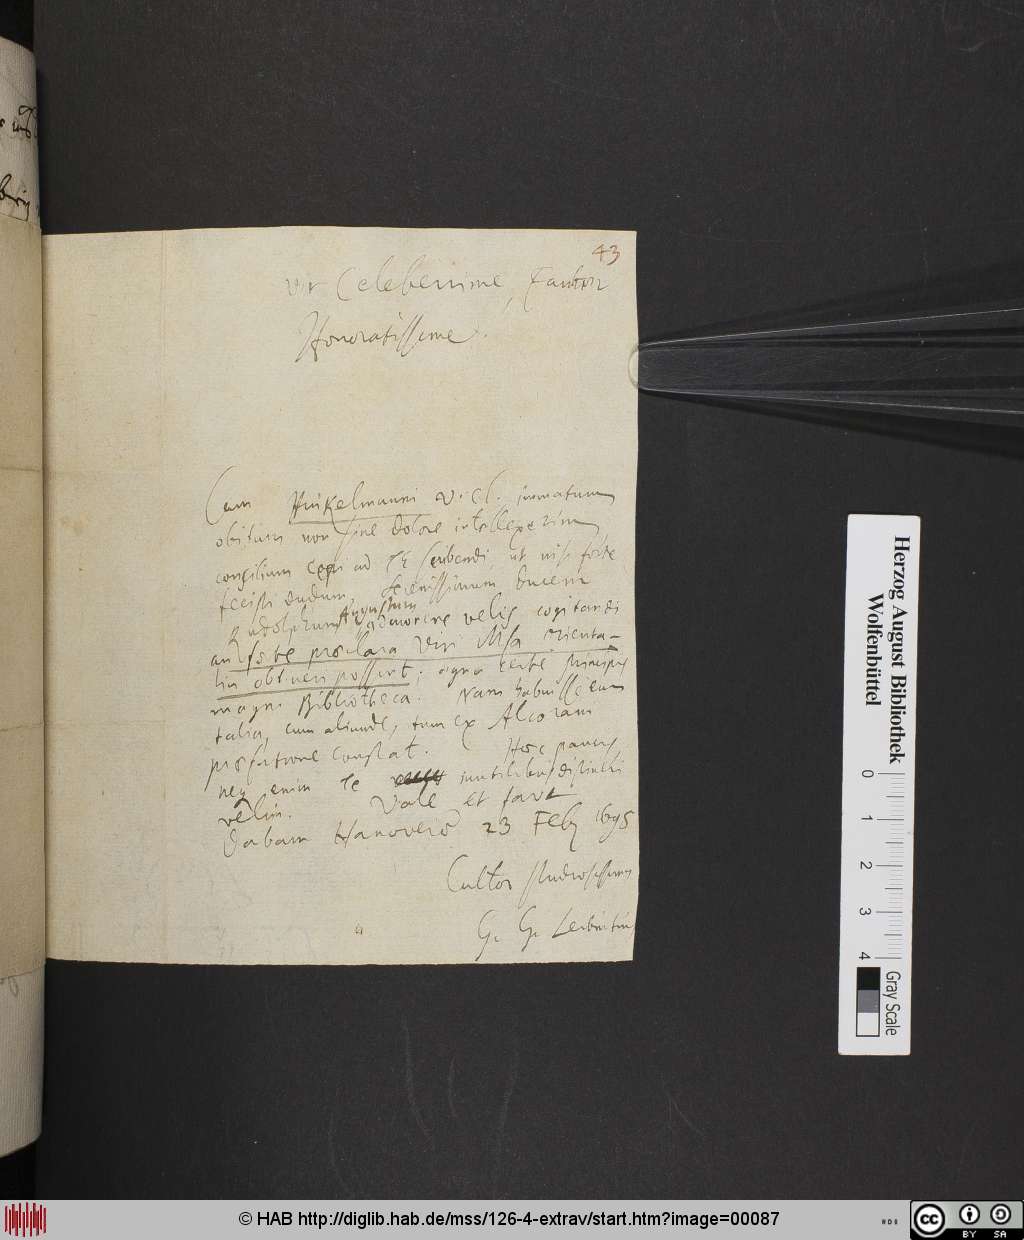 43
Vir Celeberrime, Fautor
Honoratissime.
Cum Hinkelmanni V. Cl. immaturum
obitum non sine dolore intellexerim
consilium cepi ad Te scribendi, ut nisi forte
fecisti dudum, Serenissimum Ducem
Rudolphum Augustum admonere velis cogitandi
an forte praeclara Viri Msa orienta-
lia obtineri possint; digna certe principis
magni Bibliotheca. Nam habuisse eum
talia, cum aliunde, tum ex Alcorani
praefatione constat. Haec paucis,
neq enim Te inutilibus distineri
velim. Vale et fave
dabam Hanoverae 23 Feb 1695
Cultor studiosissimus
G. G. Leibnitius
Herzog August Bibliothek
Wolfenbüttel
0 1 2 3 4
Gray Scale
© HAB http://diglib.hab.de/mss/126-4-extrav/start.htm?image=00087
cc BY SA